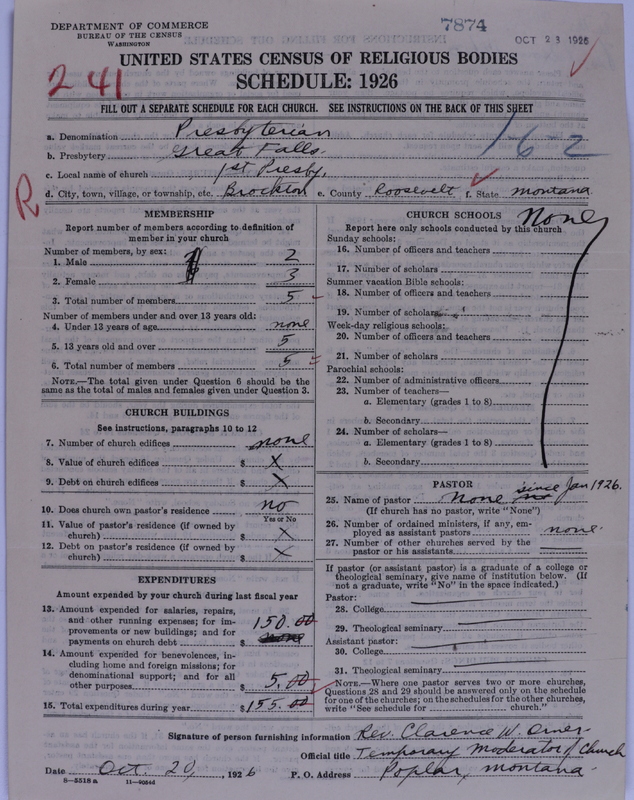 DEPARTMENT OF COMMERCE
BUREAU OF THE CENSUS
WASHINGTON
7874
OCT 23 1926
UNITED STATES CENSUS OF RELIGIOUS BODIES
SCHEDULE: 1926
241
FILL OUT A SEPARATE SCHEDULE FOR EACH CHURCH. SEE INSTRUCTIONS ON THE BACK OF THIS SHEET
1-6-2
a. Denomination Presbyterian
b. Presbytery Great Falls
c. Local name of church 1st Presby.
d. City, town, village, or township, etc. Brockton e. County Roosevelt f. State Montana
R
MEMBERSHIP
Report number of members according to definition of member in your church
Number of members, by sex:
1. Male 2
2. Female 3
3. Total number of members 5
Number of members under and over 13 years old:
4. Under 13 years of age none
5. 13 years old and over 5
6. Total number of members 5
NOTE.—The total given under Question 6 should be the
same as the total of males and females given under Question 3.
CHURCH BUILDINGS
See instructions, paragraphs 10 to 12
7. Number of church edifices none
8. Value of church edifices $ X
9. Debt on church edifices $ X
10. Does church own pastor's residence no
Yes or No
11. Value of pastor's residence (if owned by
church) $ X
12. Debt on pastor's residence (if owned by
church) $ X
EXPENDITURES
Amount expended by your church during last fiscal year
13. Amount expended for salaries, repairs,
and other running expenses; for im-
provements or new buildings; and for
payments on church debt $ 150.00
14. Amount expended for benevolences, in-
cluding home and foreign missions; for
denominational support; and for all
other purposes $ 5.00
15. Total expenditures during year $ 155.00
CHURCH SCHOOLS None
Report here only schools conducted by this church
Sunday schools:
16. Number of officers and teachers
17. Number of scholars
Summer vacation Bible schools:
18. Number of officers and teachers
19. Number of scholars
Week-day religious schools:
20. Number of officers and teachers
21. Number of scholars
Parochial schools:
22. Number of administrative officers
23. Number of teachers—
a. Elementary (grades 1 to 8)
b. Secondary
24. Number of scholars—
a. Elementary (grades 1 to 8)
b. Secondary
PASTOR
25. Name of pastor None since Jan 1926.
(If church has no pastor, write "None")
26. Number of ordained ministers, if any, em-
ployed as assistant pastors none.
27. Number of other churches served by the
pastor or his assistants
If pastor (or assistant pastor) is a graduate of a college or
theological seminary, give name of institution below. (If
not a graduate, write "No" in the space indicated.)
Pastor:
28. College
29. Theological seminary
Assistant pastor:
30. College
31. Theological seminary
NOTE.—Where one pastor serves two or more churches,
Questions 28 and 29 should be answered only on the schedule
for one of the churches; on the schedules for the other churches,
write "See schedule for church."
Signature of person furnishing information Rev. Clarence W.
Official title Temporary Moderator of Church
Date Oct. 20, 1926 P. O. Address Poplar, Montana
8-5518 a